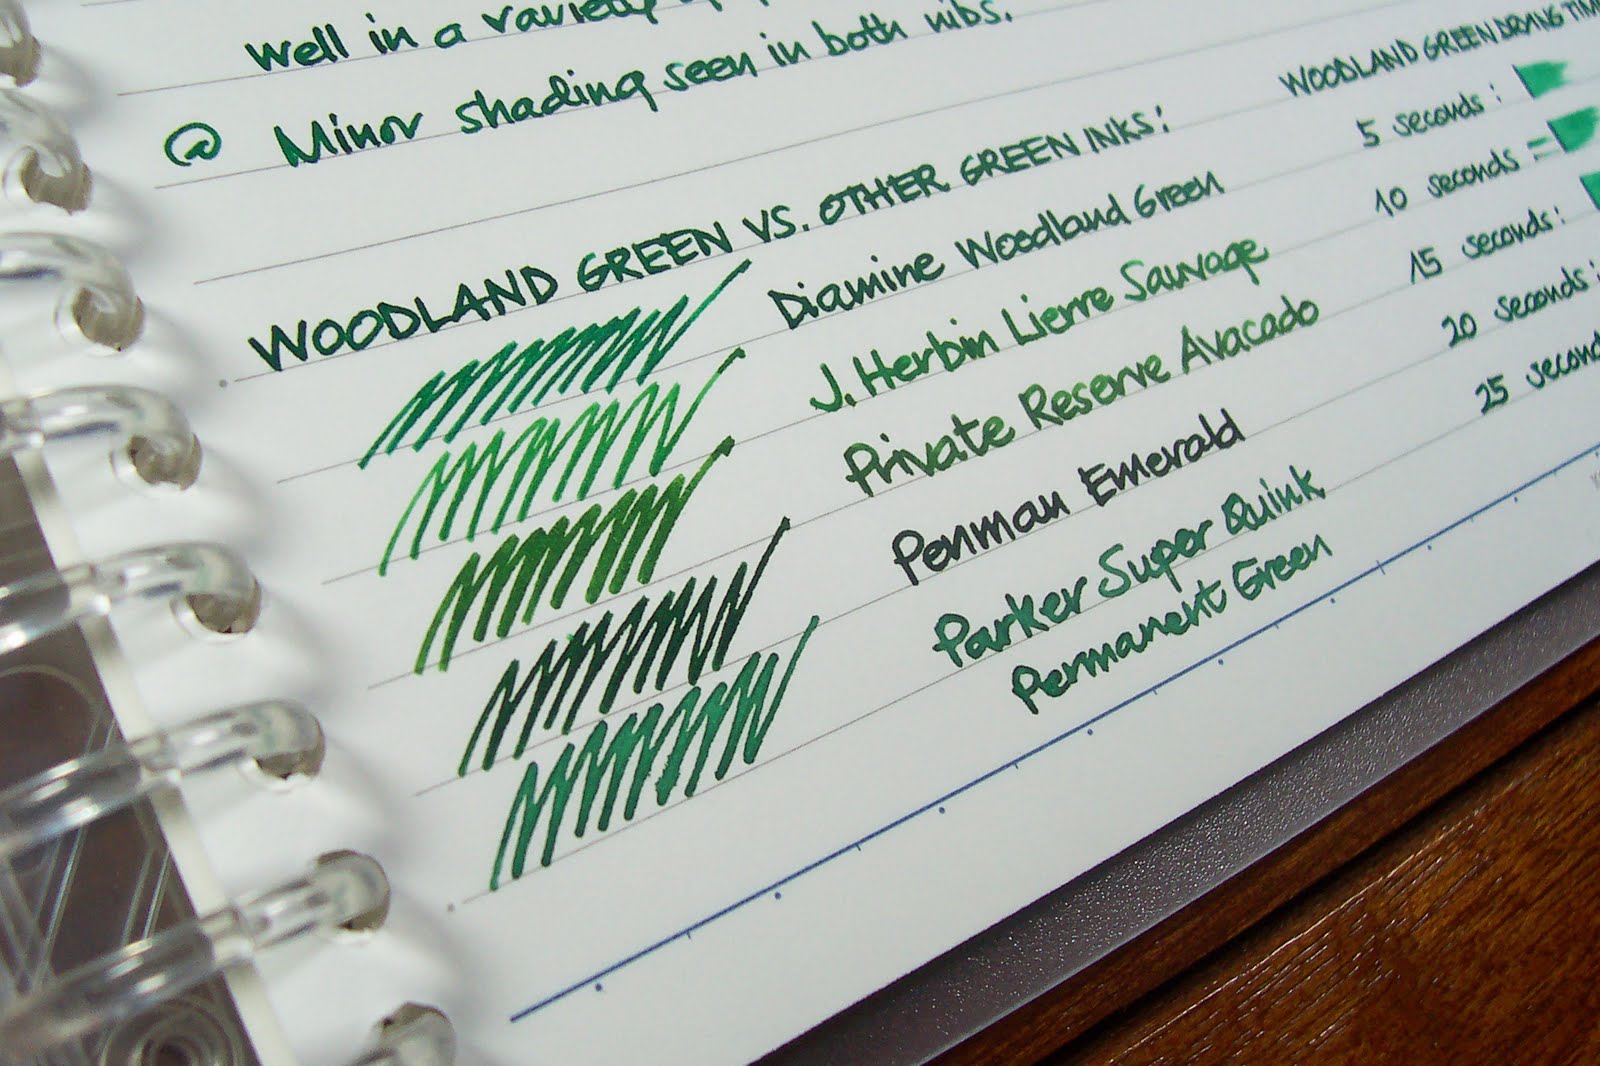 well in a variety
@ Minor shading seen in both nibs.
WOODLAND GREEN VS. OTHER GREEN INKS:
Diamine Woodland Green
J. Herbin Lierre Sauvage
Private Reserve Avacado
Penman Emerald
Parker Super Quink
Permanent Green
WOODLAND GREEN DRYING TIM
5 seconds :
10 seconds =
15 seconds:
20 seconds:
25 second